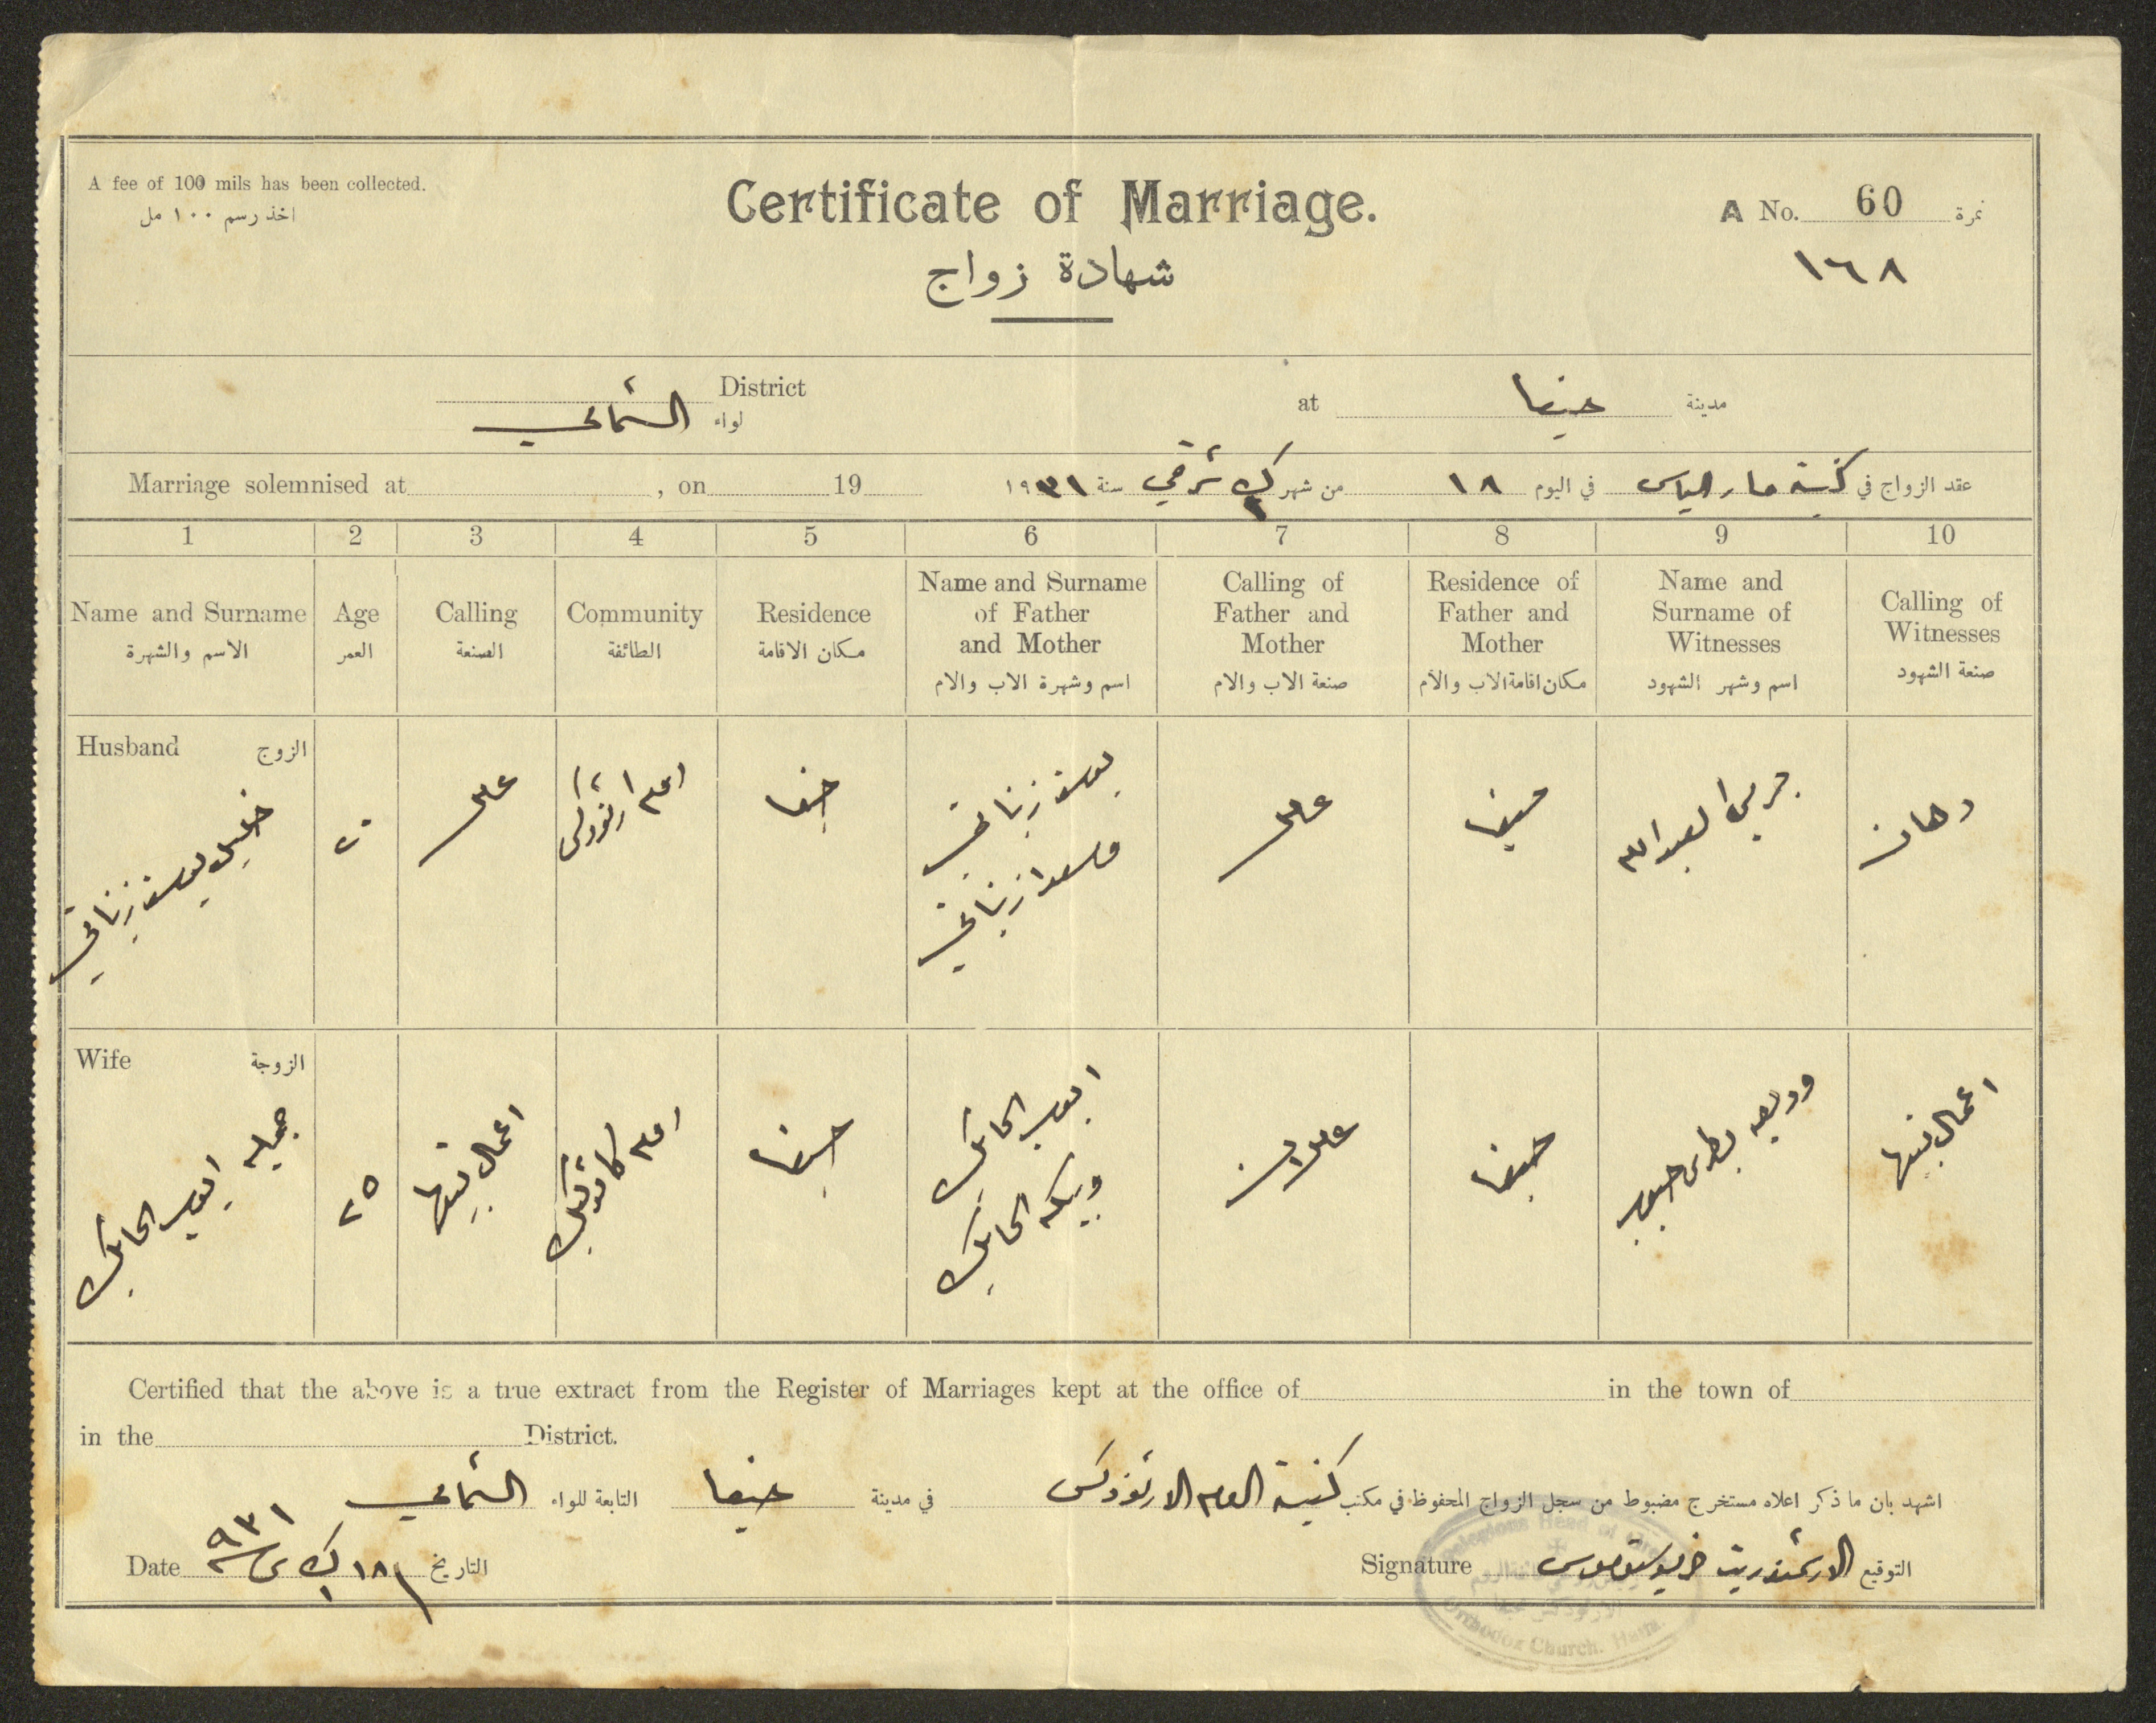 A fee of 100 mils has been collected.
اخذ رسم ١٠٠ مل
Certificate of Marriage.
شهادة زواج
A No. 60 نمرة
١٦٨
District
لواء الشمالي
at حيفا مدينة
Marriage solemnised at , on 19
عقد الزواج في كنيسة مار الياس في اليوم ١٨ من شهر ك شرقي سنة ١٩٣١
1 2 3 4 5 6 7 8 9 10
Name and Surname
الاسم والشهرة
Age
العمر
Calling
الصنعة
Community
الطائفة
Residence
مكان الاقامة
Name and Surname
of Father
and Mother
اسم وشهرة الاب والام
Calling of
Father and
Mother
صنعة الاب والام
Residence of
Father and
Mother
مكان اقامة الاب والام
Name and
Surname of
Witnesses
اسم وشهر الشهود
Calling of
Witnesses
صنعة الشهود
Husband الزوج
خليل يوسف زناتي
٢٠
روم ارثوذكس
حيفا
يوسف زناتي
زناتي
حيفا
جريس العبدالله
دهان
Wife الزوجة
جميله ايوب الحايك
٢٥
اعمال بيتها
روم كاثوليك
حيفا
ايوب الحايك
الحايك
حيفا
وديعه بطرس حبيب
اعمال بيتها
Certified that the above is a true extract from the Register of Marriages kept at the office of in the town of
in the District.
اشهد بان ما ذكر اعلاه مستخرج مضبوط من سجل الزواج المحفوظ في مكتب كنيسة الروم الارثوذكس في مدينة حيفا التابعة للواء الشمالي
Date ١٨ ك ١ ش ٩٣١ التاريخ
Signature الارشمندريت خريسوستموس التوقيع
Religious Head of
Orthodox Church. Haifa.